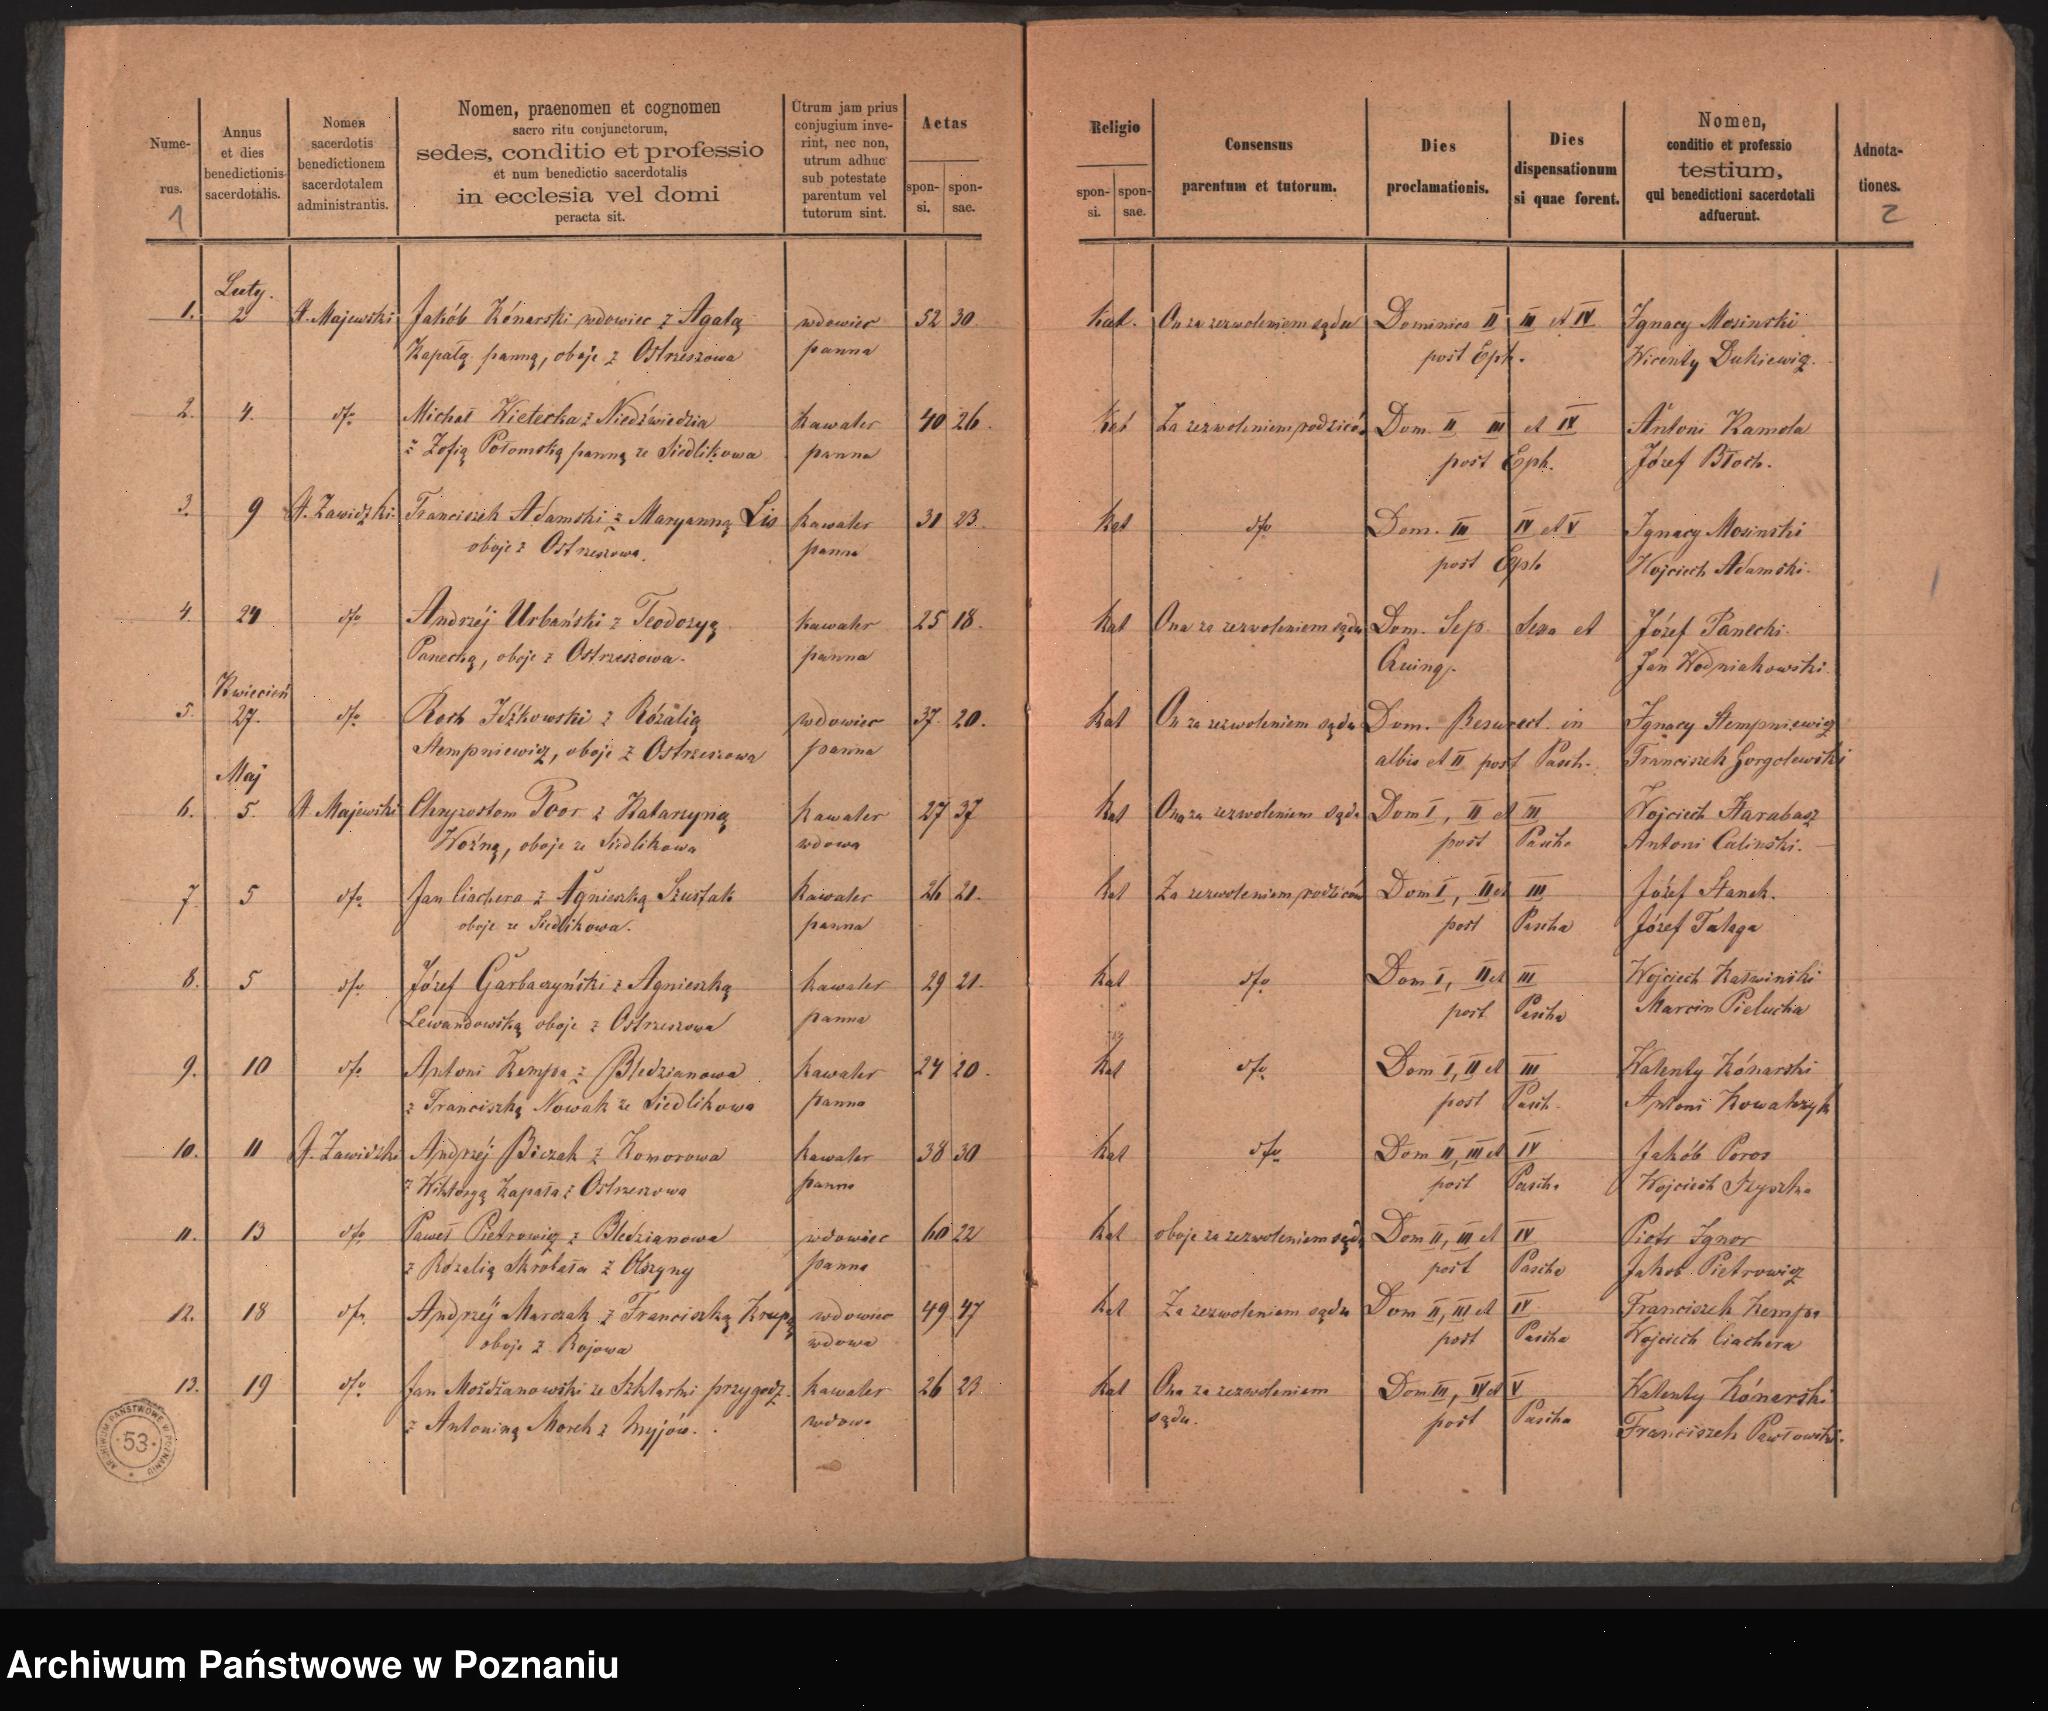 Nume-
rus.
1
Annus
et dies
benedictionis
sacerdotalis.
Nomen
sacerdotis
benedictionem
sacerdotalem
administrantis.
Nomen, praenomen et cognomen
sacro ritu conjunctorum,
sedes, conditio et professio
et num benedictio sacerdotalis
in ecclesia vel domi
peracta sit.
Utrum jam prius
conjugium inve-
rint, nec non,
utrum adhuc
sub potestate
parentum vel
tutorum sint.
Aetas
spon-
si.
spon-
sae.
Religio
spon-
si.
spon-
sae.
Consensus
parentum et tutorum.
Dies
proclamationis.
Dies
dispensationum
si quae forent.
Nomen,
conditio et professio
testium,
qui benedictioni sacerdotali
adfuerunt.
Adnota-
tiones.
2
Luty.
1. 2 A. Majewski Jakób Kónarski wdowiec z Agatą wdowiec 52 30. kat. On za zezwoleniem sądu Dominica II III et IV Ignacy Mosinski
Kapałą panną, oboje z Ostrzeszowa panna post Eph. Wicenty Dukiewicz.
2. 4. dto Michał Wieteska z Niedźwiedzia kawaler 40 26. kat Za zezwoleniem rodziców Dom. II III et IV Antoni Kamola
z Zofią Połomską panną ze Siedlikowa panna post Eph. Józef Błoch.
3. 9 A. Zawidzki. Franciszek Adamski z Maryanną Lis kawaler 31 23. kat dto Dom. III IV et V Ignacy Mosinski
oboje z Ostrzeszowa. panna post Eph Wojciech Adamski.
4. 24 dto Andrzéj Urbański z Teodozyą kawaler 25 18. kat Ona za zezwoleniem sądu Dom. Sep. Sexa et Józef Panecki.
Panecką, oboje z Ostrzeszowa. panna Quinq. Jan Wodniakowski.
Kwiecień
5. 27. dto Roch Idźkowski z Rózalią wdowiec 37. 20. kat On za zezwoleniem sądu Dom. Resurect. in Ignacy Stempniewicz
Stempniewicz, oboje z Ostrzeszowa panna albis et II post Pasch. Franciszek Gorgolewski
Maj
6. 5. A. Majewski Chryzostom Poor z Katarzyną kawaler 27 37 kat Ona za zezwoleniem sądu Dom I, II et III Wojciech Harabasz
Woźną, oboje ze Siedlikowa wdowa post Pascha Antoni Calinski.
7. 5 dto Jan Ciachera z Agnieszką Szustak kawaler 26 21. kat Za zezwoleniem rodziców Dom I, II et III Józef Stanek.
oboje ze Siedlikowa. panna post Pascha Józef Talaga
8. 5 dto Józef Garbaczyński z Agnieszką kawaler 29 21. kat dto Dom I, II et III Wojciech Kałwinski
Lewandowską oboje z Ostrzeszowa panna post Pascha Marcin Pielucha
9. 10 dto Antoni Kempa z Bledzianowa kawaler 24 20. kat dto Dom I, II et III Walenty Kónarski
z Franciszką Nowak ze Siedlikowa panna post Pasch. Antoni Kowalczyk
10. 11 A. Zawidzki Andrzéj Biczak z Komorowa kawaler 38 30 kat dto Dom II, III et IV Jakób Poros
z Wiktoryą Kapała z Ostrzeszowa panna post Pascha Wojciech Szyszka
11. 13 dto Paweł Pietrowicz z Bledzianowa wdowiec 60 22 kat oboje za zezwoleniem sądu Dom II, III et IV Piotr Ignor
z Rózalią Skrobała z Olszyny panna post Pascha Jakob Pietrowicz
12. 18 dto Andrzéj Marczak z Franciszką Krupą wdowiec 49 47 kat Za zezwoleniem sądu Dom II, III et IV Franciszek Kempa
oboje z Rojowa wdowa post Pascha Wojciech Ciachera
13. 19 dto Jan Moźdźanowski ze Szklarki przygodz. kawaler 26 23 kat Ona za zezwoleniem Dom III, IV et V Walenty Kónarski
z Antoniną Morch z Myjów. wdowa sądu. post Pascha Franciszek Pawłowski.
ARCHIWUM PAŃSTWOWE W POZNANIU
53
Archiwum Państwowe w Poznaniu